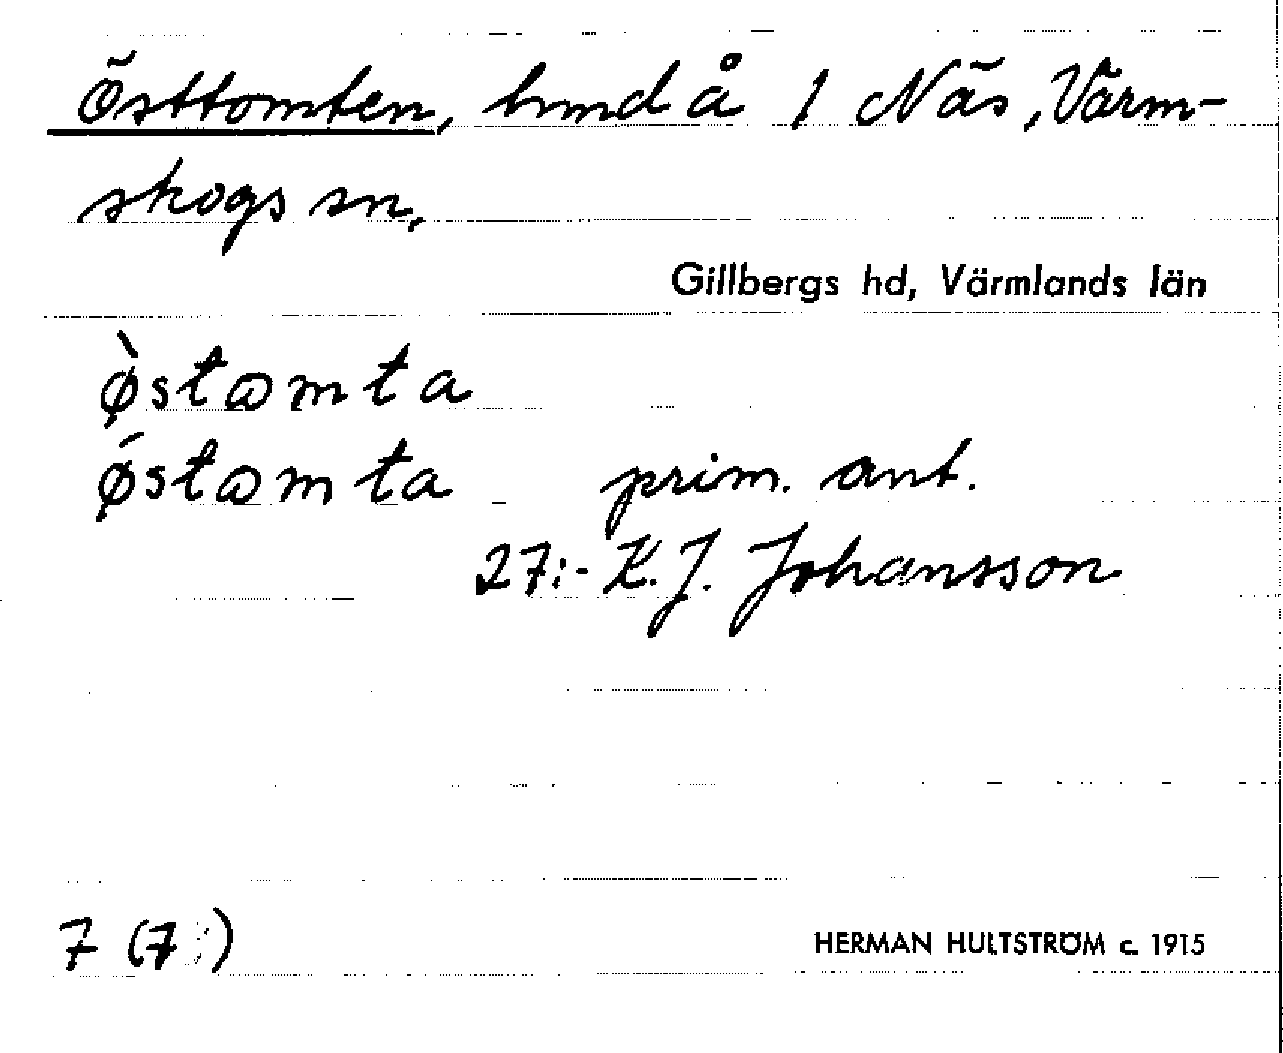 Östtomten, hmd å 1 Näs, Värm-
skogs sn,
Gillbergs hd, Värmlands län
ø̀stɷmta
ǿstɷmta prim. ant.
27:- K. J. Johansson
7 (7 )
HERMAN HULTSTRÖM c. 1915